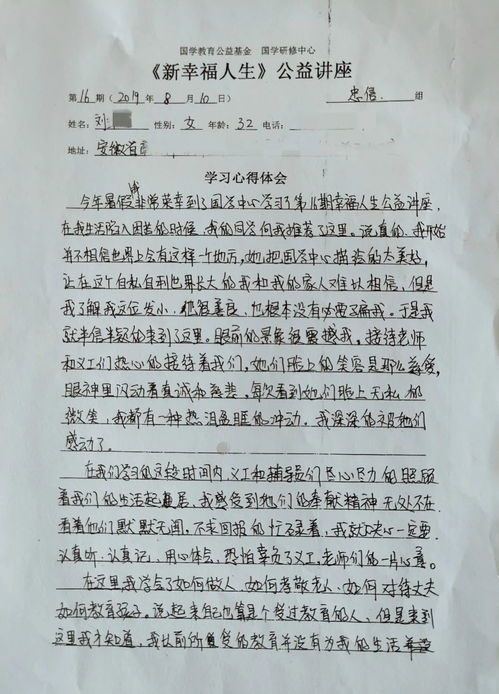 国学教育公益基金 国学研修中心
《新幸福人生》公益讲座
第16期(2019年8月10日) 忠信 组
姓名:刘 性别:女 年龄:32 电话:
地址:安徽省
学习心得体会
今年暑假我非常荣幸到了国学中心学习了第16期幸福人生公益讲座,
在我生活陷入困苦的时候,我的同学向我推荐了这里。说真的,我开始
并不相信世界上会有这样一个地方,她把国学中心描绘的太美好,
让在这个自私自利世界长大的我和我的家人难以相信,但是
我了解我这位发小,他很善良,也根本没有必要骗我。于是我
就半信半疑的来到了这里。眼前的景象很震撼我。接待老师
和义工们热心的接待着我们,她们脸上的笑容是那么慈爱,
眼神里闪动着真诚和慈祥,每次看到她们脸上无私的
微笑,我都有一种热泪盈眶的冲动,我深深的被她们
感动了。
在我们学习的这段时间内,义工和辅导员们尽心尽力的照顾
着我们的生活起居,我感受到他们的奉献精神无处不在
看着他们默默无闻,不求回报的忙碌着,我就决心一定要
认真听、认真记,用心体会,恐怕辜负了义工,老师们的一片心意。
在这里我学会了如何做人,如何孝敬老人,如何对待丈夫
如何教育孩子。说起来自己也算是个受过教育的人,但是来到
这里我才知道,我以前所受的教育并没有为我的生活